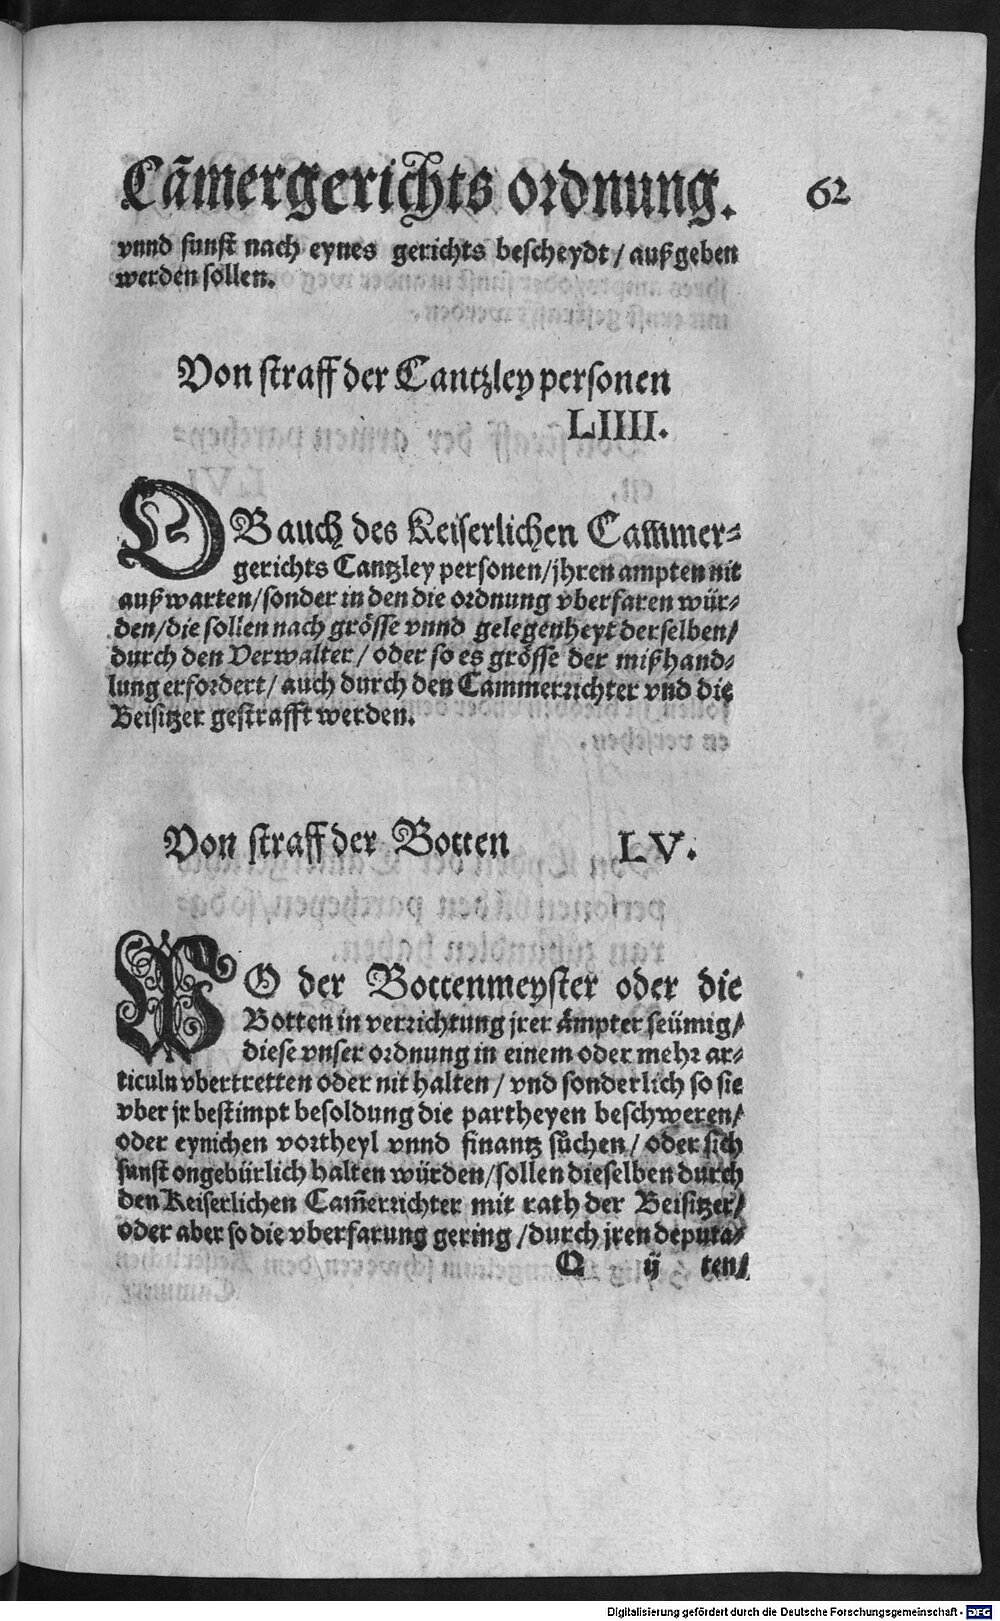 Cãmergerichts ordnung. 62
vnnd sunst nach eynes gerichts bescheydt / außgeben
werden sollen.
Von straff der Cantzley personen
LIIII.
OB auch des Keiserlichen Cammer-
gerichts Cantzley personen / jhren ampten nit
auß warten / sonder in den die ordnung vberfaren wür-
den / die sollen nach grösse vnnd gelegenheyt derselben /
durch den Verwalter / oder so es grösse der mißhand-
lung erfordert / auch durch den Cammerrichter vnd die
Beisitzer gestrafft werden.
Von straff der Botten LV.
WO der Bottenmeyster oder die
Botten in verrichtung jrer ämpter seümig /
diese vnser ordnung in einem oder mehr ar-
ticuln vbertretten oder nit halten / vnd sonderlich so sie
vber jr bestimpt besoldung die partheyen beschweren /
oder eynichen vortheyl vnnd finantz süchen / oder sich
sunst ongebürlich halten würden / sollen dieselben durch
den Keiserlichen Cam̃errichter mit rath der Beisitzer /
oder aber so die vberfarung gering / durch jren deputa-
Q ij ten /
Digitalisierung gefördert durch die Deutsche Forschungsgemeinschaft - DFG